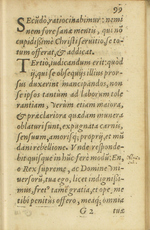 99
SEcūdo, ratiocinabimur: nemi
nem fore sana mentis, qui nō
cupidissimè Christi seruitio, se to-
tum offerat, & addicat.
TErtiò, iudicandum erit: quòd
ij, qui se obsequijs illius pror-
sus duxerint mancipandos, non
seipsos tantùm ad laborum tole
rantiam, verùm etiam maiora,
& præclariora quædam munera
oblaturi sunt, expugnata carnis,
sensuum, amorisque proprij, &
mundi rebellione. Vnde responde-
bit quisque in hūc ferè modū: En,
ô Rex supreme, ac Domine vni-
uersorū, tua ego, licet indignissi-
mus, fretus tamē gratia, et ope, me
tibi penitus offero, meaq; omnia
G 2 tuæ